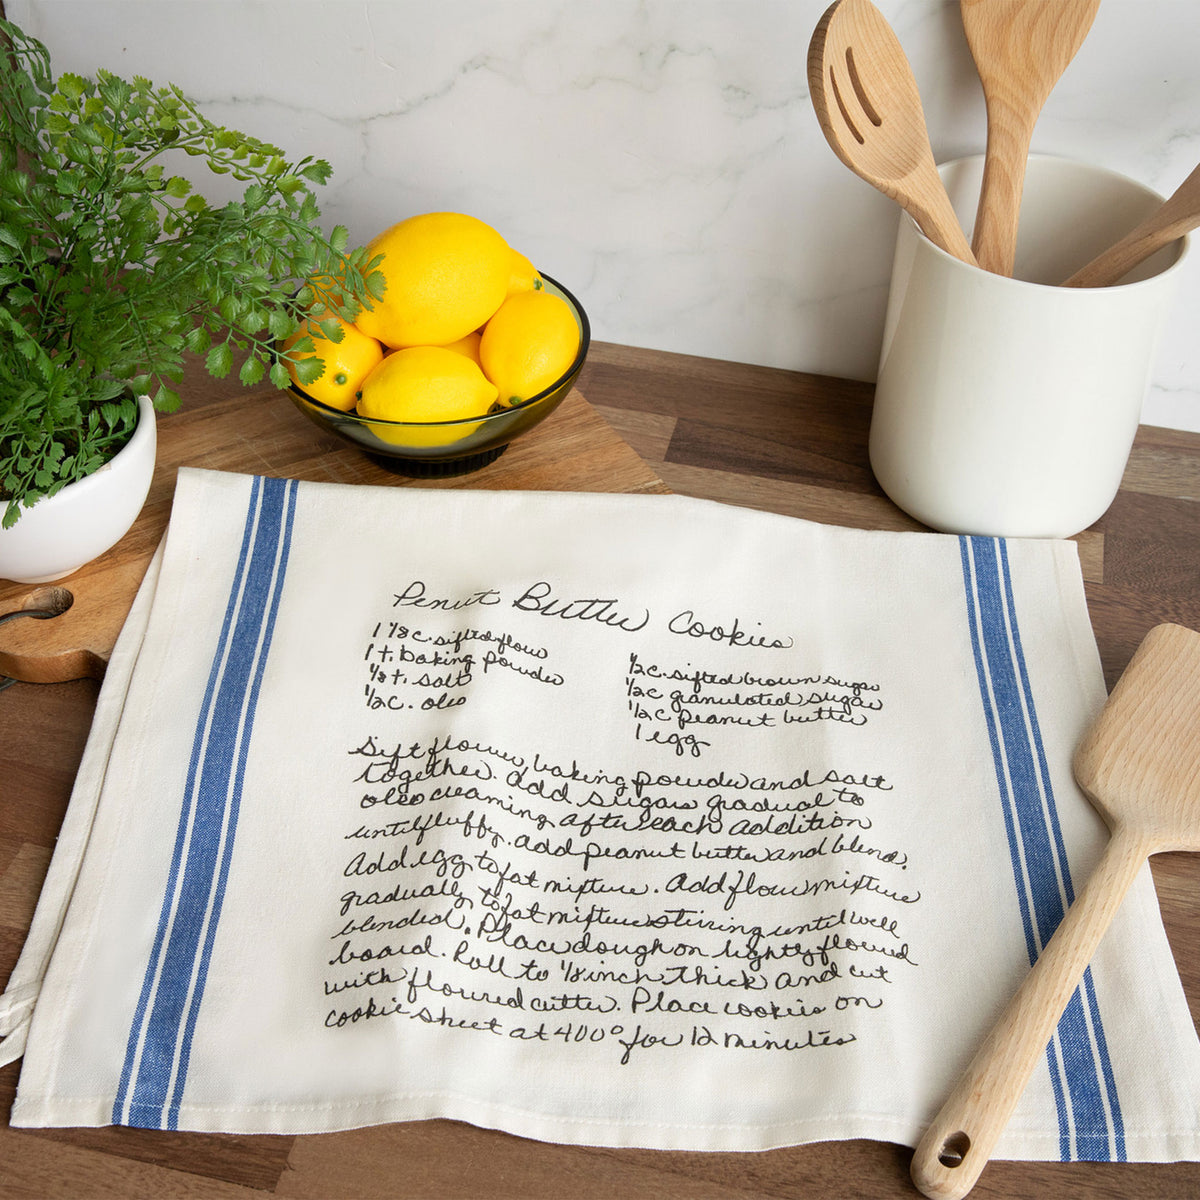 Penut Butter Cookies
1 1/8 c. sifted flour
1 t. baking powder
1/8 t. salt
1/2 c. oleo
1/2 c. sifted brown sugar
1/2 c granulated sugar
1/2 c peanut butter
1 egg
Sift flour, baking powder and salt
together. Add sugars gradual to
oleo creaming after each addition
until fluffy. add peanut butter and blend.
Add egg to fat mixture. Add flour mixture
gradually to fat mixture stirring until well
blended. Place dough on lightly floured
board. Roll to 1/8 inch thick and cut
with floured cutter. Place cookies on
cookie sheet at 400° for 12 minutes